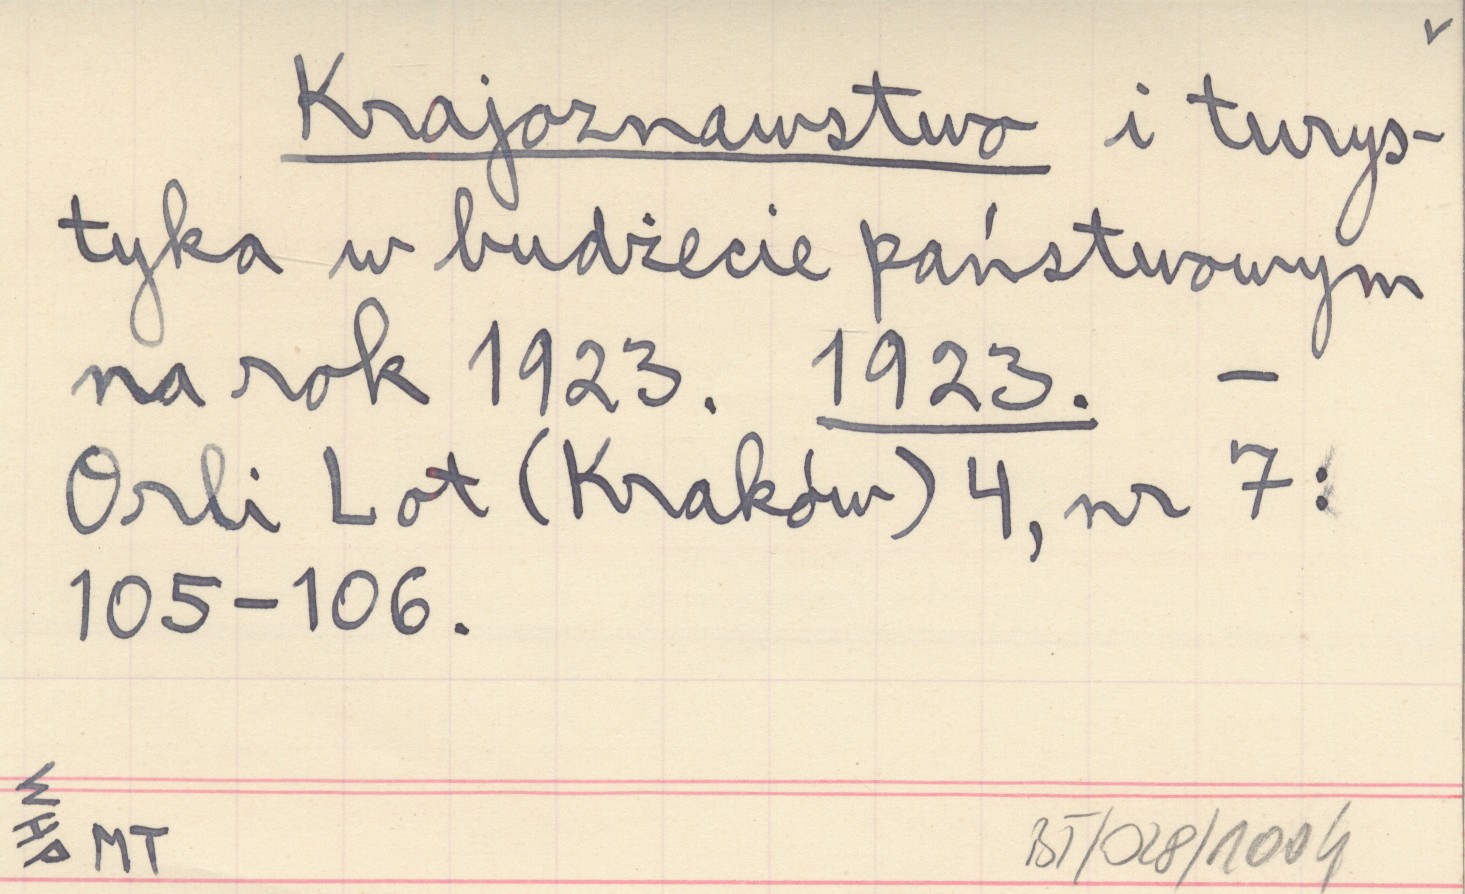 Krajoznawstwo i turys-
tyka w budżecie państwowym
na rok 1923. 1923. –
Orli Lot (Kraków) 4, nr 7:
105–106.
WHP
MT
BT/028/1004